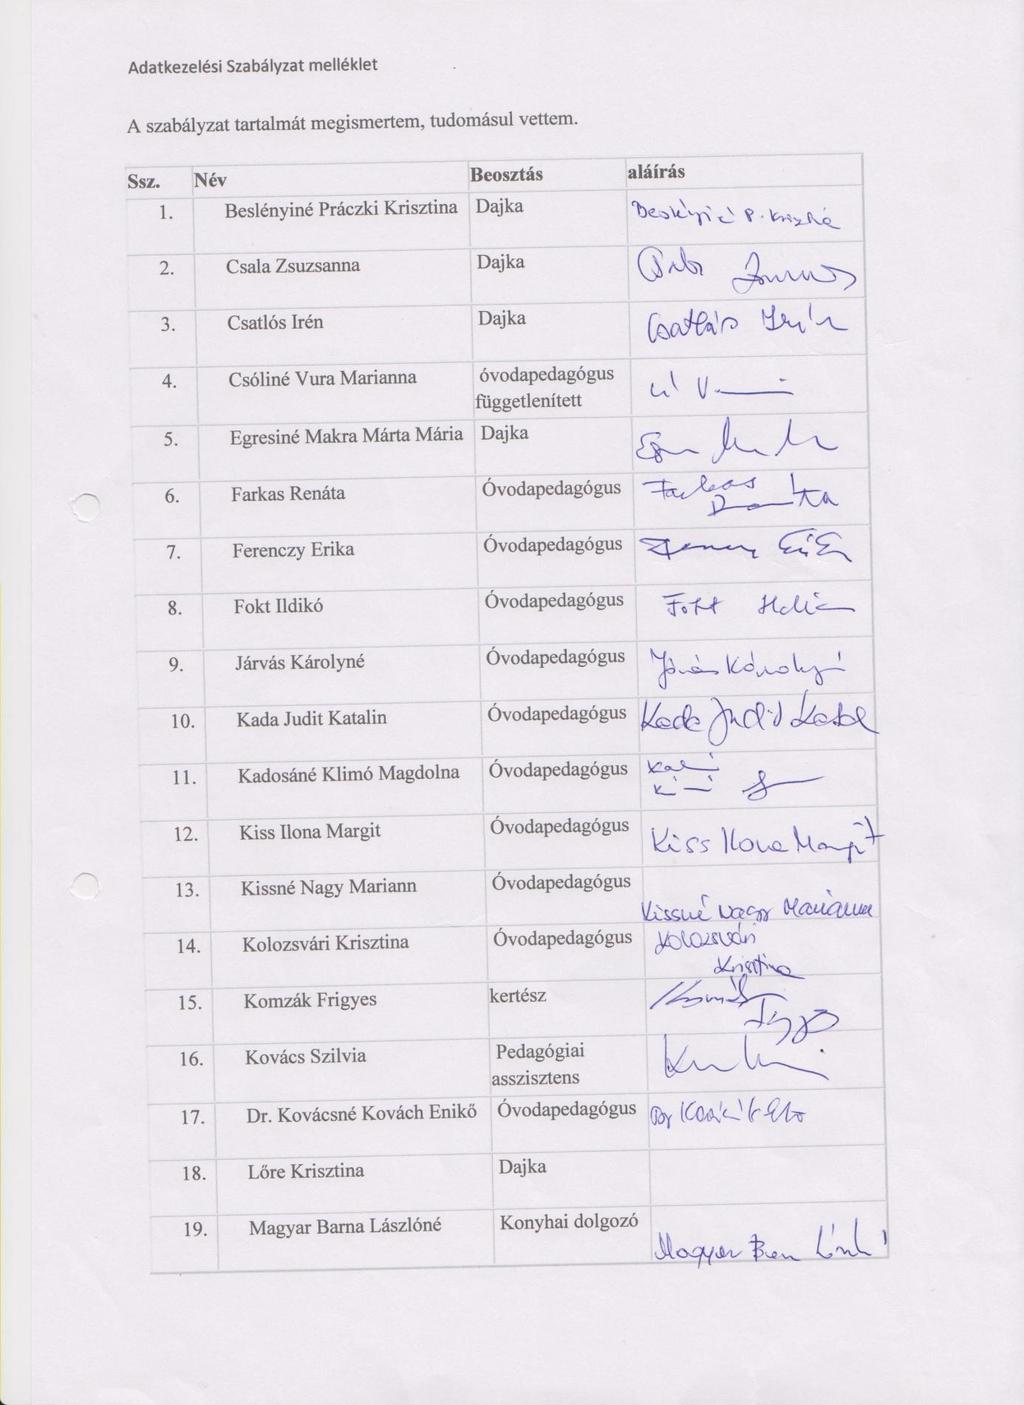 Adatkezelési Szabályzat melléklet
A szabályzat tartalmát megismertem, tudomásul vettem.
Ssz. Név Beosztás aláírás
1. Beslényiné Práczki Krisztina Dajka
2. Csala Zsuzsanna Dajka
3. Csatlós Irén Dajka Csatlós Irén
4. Csóliné Vura Marianna óvodapedagógus
függetlenített
5. Egresiné Makra Márta Mária Dajka
6. Farkas Renáta Óvodapedagógus Farkas
7. Ferenczy Erika Óvodapedagógus
8. Fokt Ildikó Óvodapedagógus Fokt
9. Járvás Károlyné Óvodapedagógus
10. Kada Judit Katalin Óvodapedagógus Kada Judit
11. Kadosáné Klimó Magdolna Óvodapedagógus
12. Kiss Ilona Margit Óvodapedagógus Kiss Ilona Margit
13. Kissné Nagy Mariann Óvodapedagógus
Kissné Nagy Marianna
14. Kolozsvári Krisztina Óvodapedagógus Kolozsvári
Krisztina
15. Komzák Frigyes kertész
16. Kovács Szilvia Pedagógiai
asszisztens
17. Dr. Kovácsné Kovách Enikő Óvodapedagógus
18. Lőre Krisztina Dajka
19. Magyar Barna Lászlóné Konyhai dolgozó
Magyar